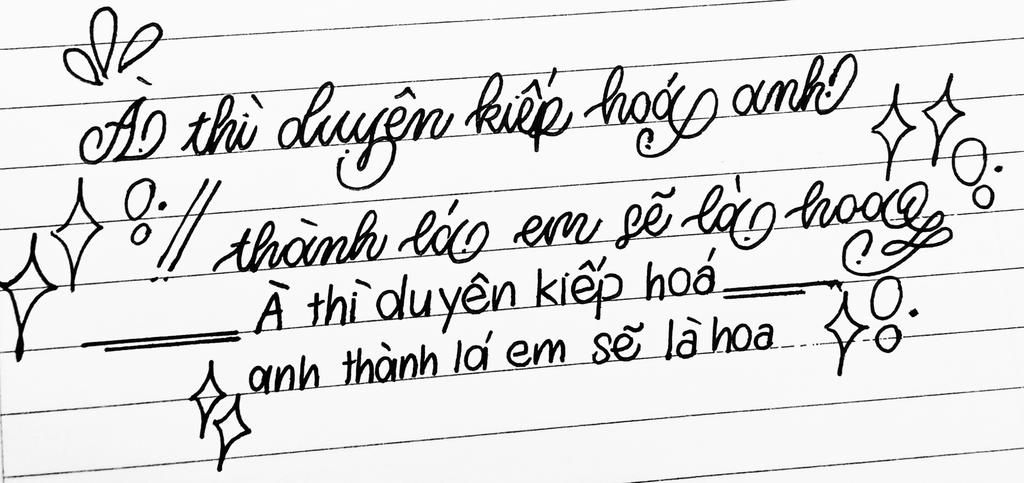 À thì duyên kiếp hoá anh
thành lá em sẽ là hoa
À thì duyên kiếp hoá
anh thành lá em sẽ là hoa